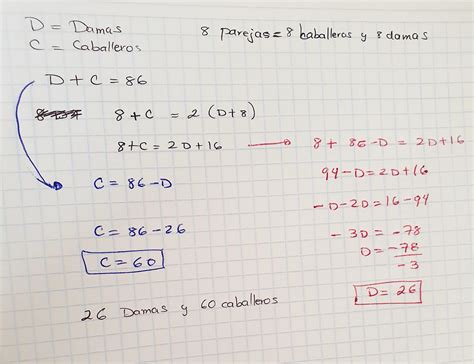 D = Damas
C = Caballeros
8 parejas = 8 caballeros y 8 damas
D + C = 86
8 + C = 2 (D+8)
8+C = 2D+16
C = 86-D
C = 86-26
C = 60
8 + 86-D = 2D+16
94-D = 2D+16
-D-2D = 16-94
-3D = -78
D = -78
-3
D = 26
26 Damas y 60 caballeros